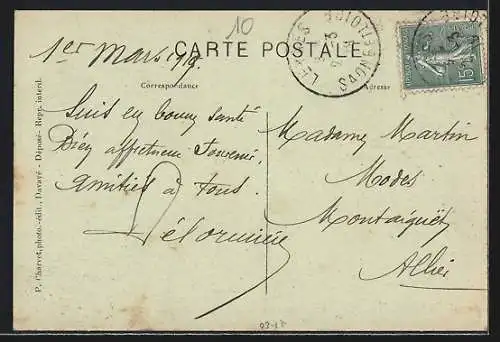 10
CARTE POSTALE
1er Mars 1919.
Correspondance
Adresse
LEYNES
SAONE-ET-LOIRE
15
Suis en bonne santé
Bien affectueux souvenir.
Amitiés à tous.
Delorme
Madame Martin
Modes
Montaiguët
Allier
P. Charvet, photo.-édit., Davayé - Déposé- Repp. interd.